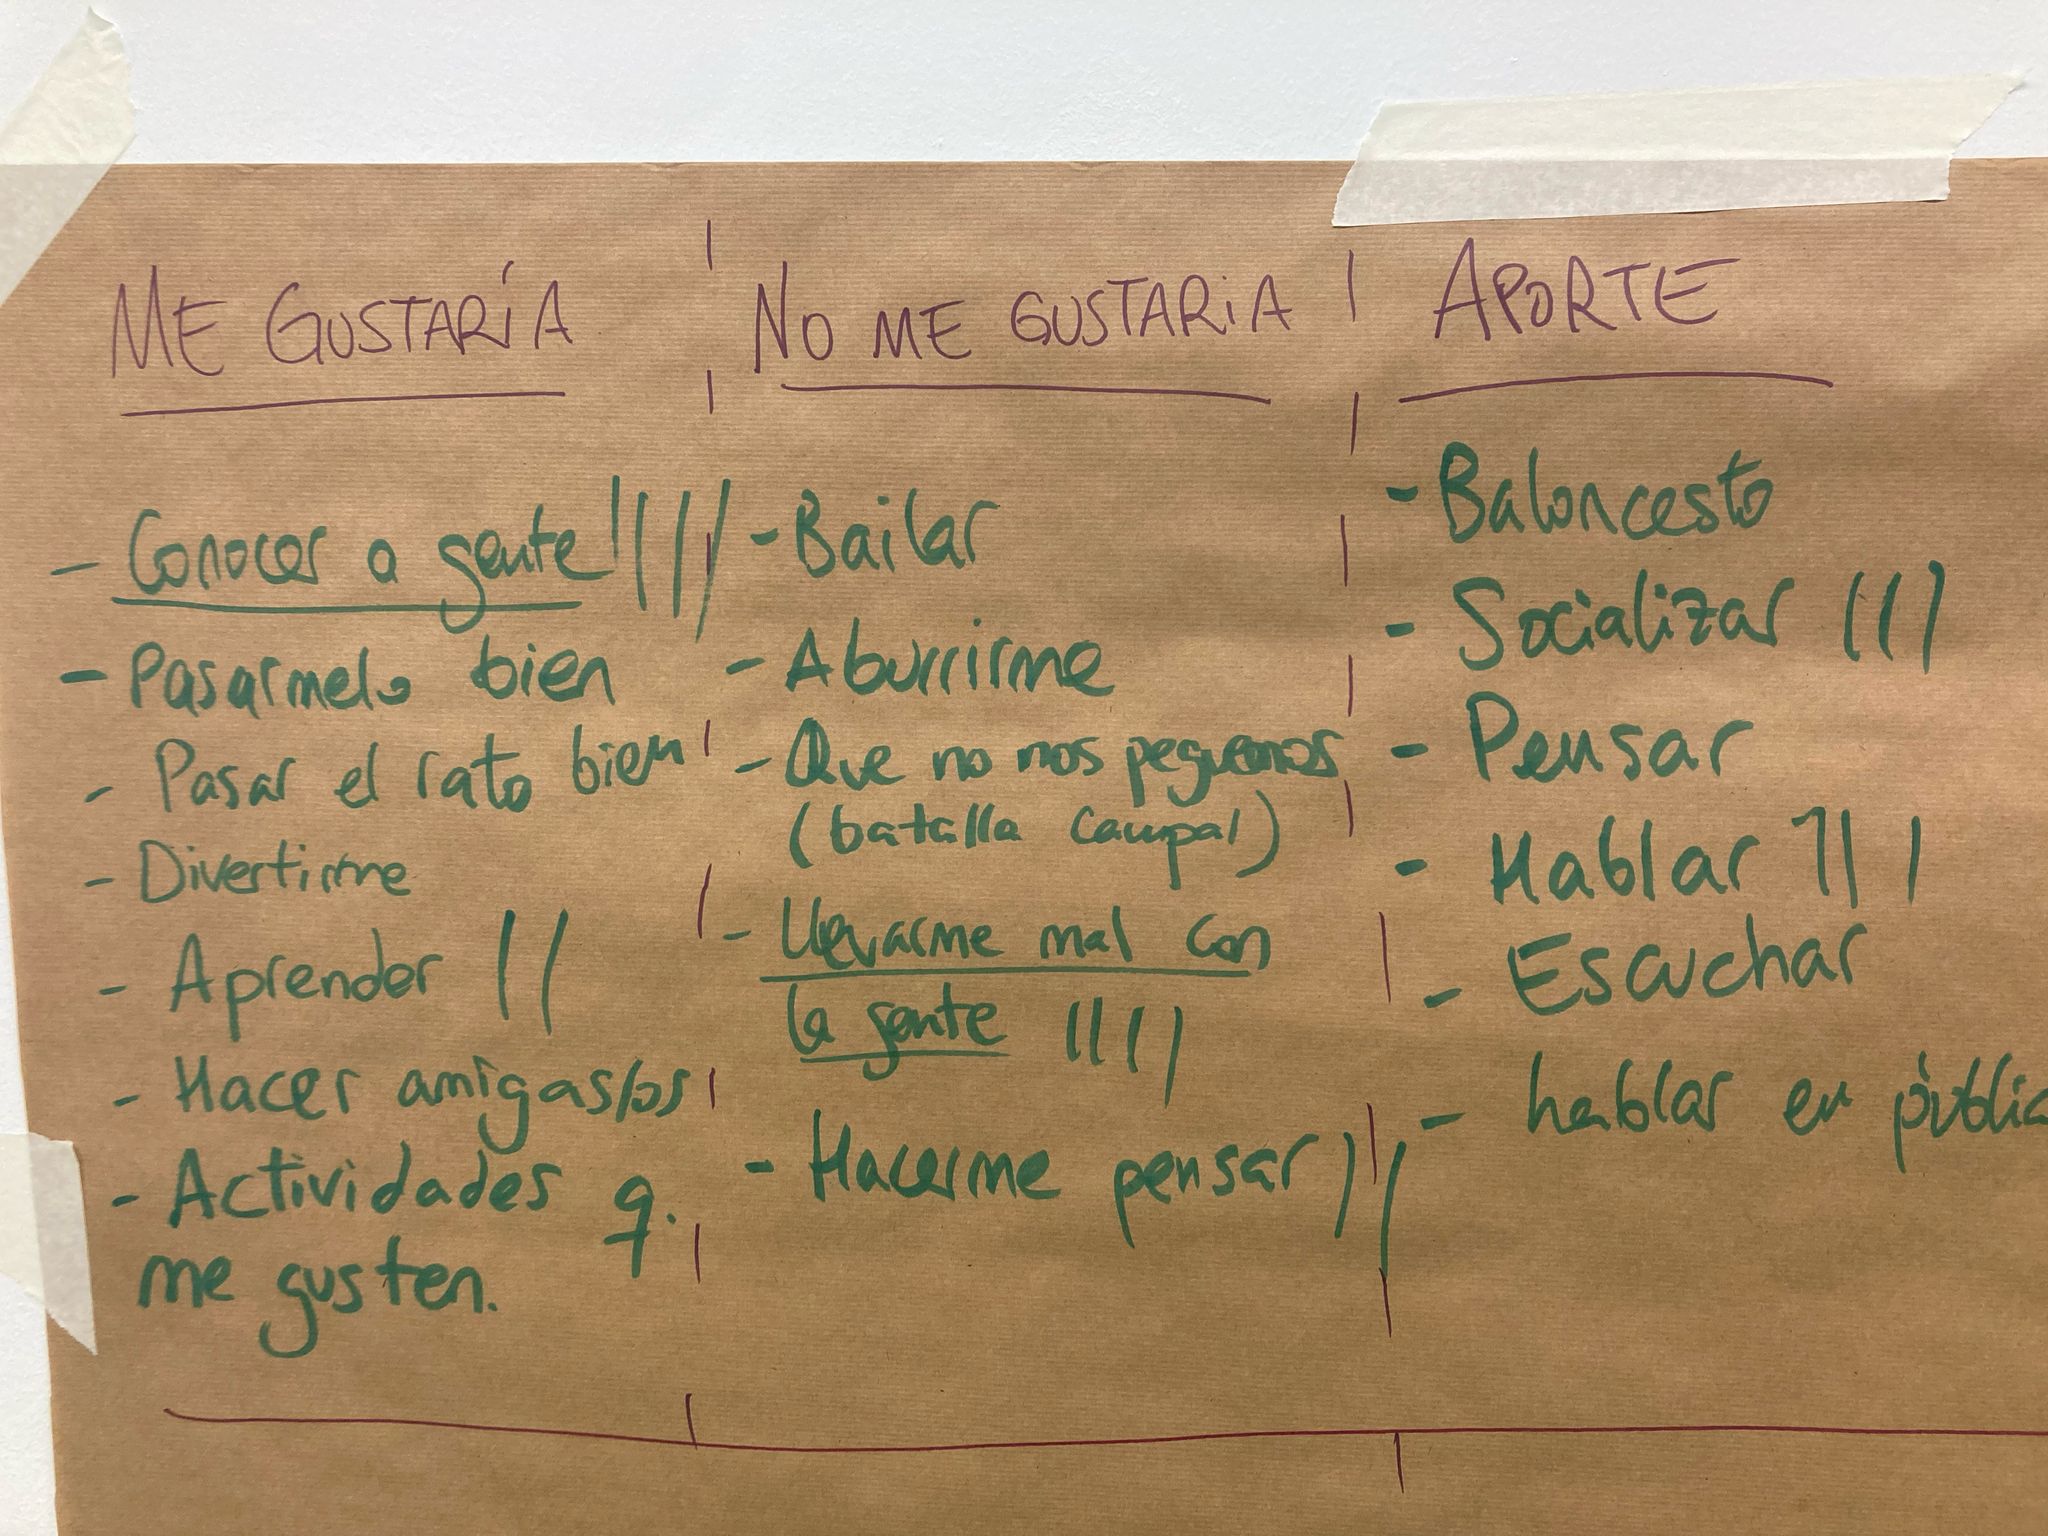 ME GUSTARÍA
- Conocer a gente
- Pasarmelo bien
- Pasar el rato bien
- Divertirme
- Aprender
- Hacer amigas/os
- Actividades q.
me gusten.
NO ME GUSTARIA
- Bailar
- Aburrirme
- Que no nos peguemos
(batalla campal)
- Llevarme mal con
la gente
- Hacerme pensar
APORTE
- Baloncesto
- Socializar
- Pensar
- Hablar
- Escuchar
- hablar en públic